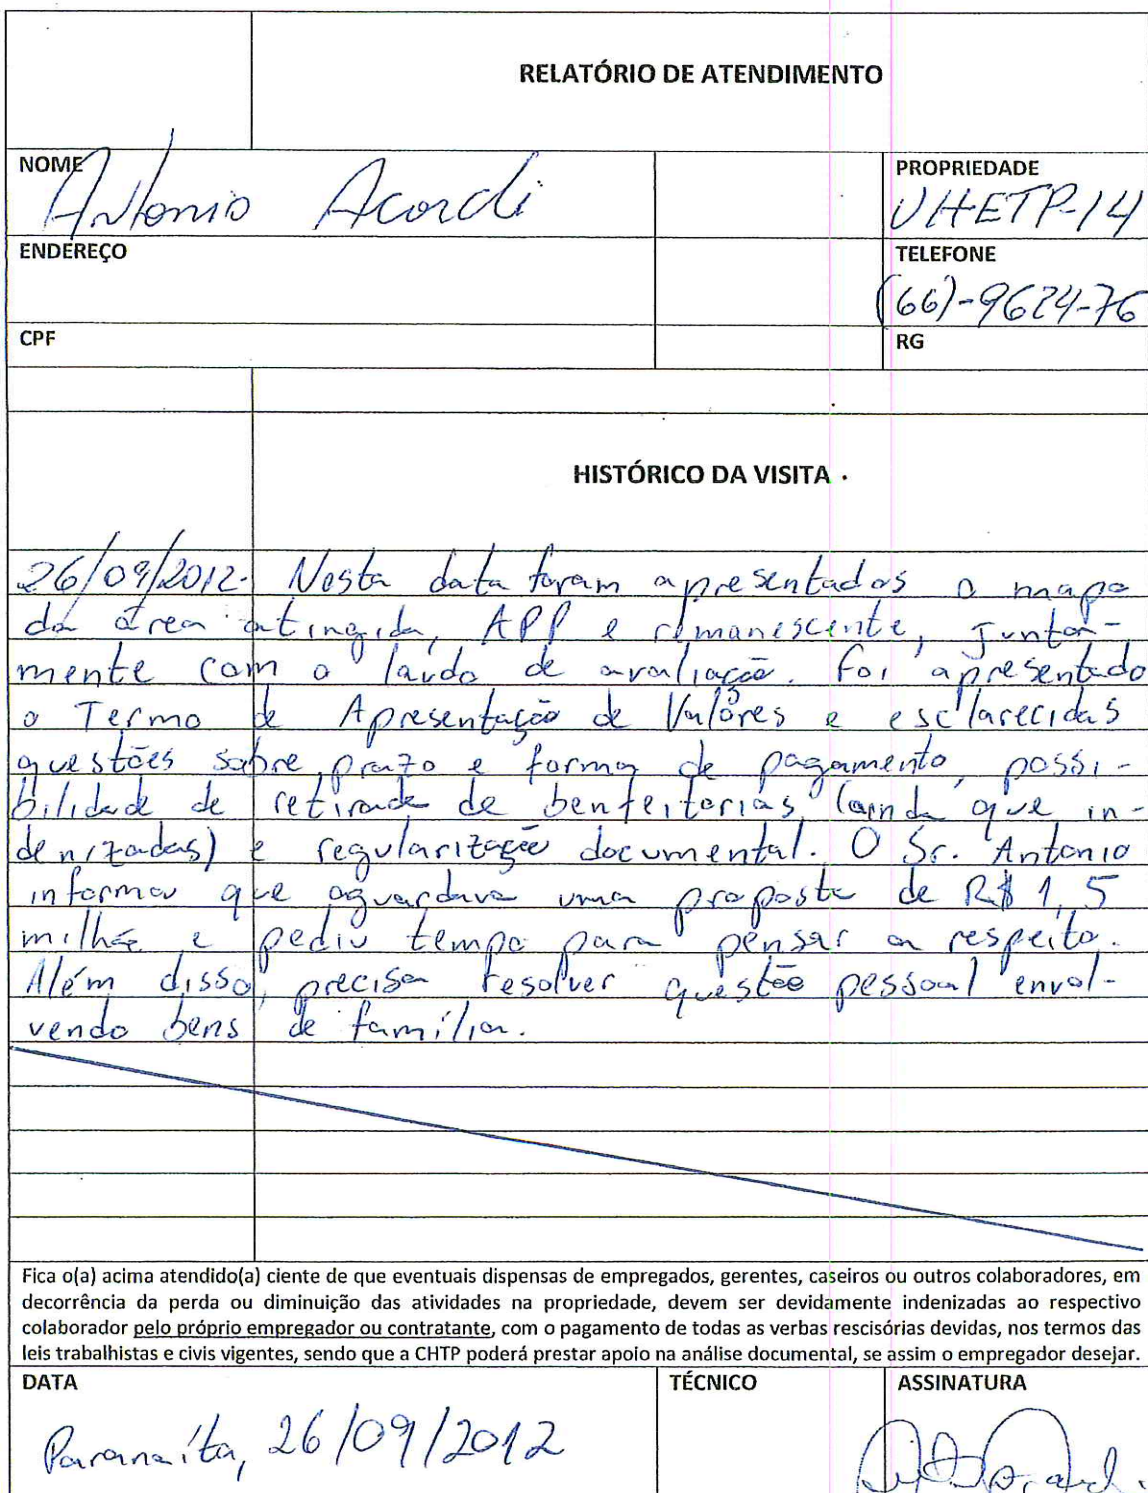 RELATÓRIO DE ATENDIMENTO
NOME
Antonio Acordi
PROPRIEDADE
UHETP-14
ENDEREÇO
TELEFONE
(66)-9624-76
CPF
RG
HISTÓRICO DA VISITA
26/09/2012- Nesta data foram apresentados o mapa
da área atingida, APP e remanescente, junta-
mente com o laudo de avaliação. Foi apresentado
o Termo de Apresentação de Valores e esclarecidas
questões sobre prazo e forma de pagamento, possi-
bilidade de retirada de benfeitorias (ainda que in-
denizadas) e regularização documental. O Sr. Antonio
informa que aguardava uma proposta de R$ 1,5
milhão e pediu tempo para pensar a respeito.
Além disso, precisa resolver questão pessoal envol-
vendo bens de família.
Fica o(a) acima atendido(a) ciente de que eventuais dispensas de empregados, gerentes, caseiros ou outros colaboradores, em
decorrência da perda ou diminuição das atividades na propriedade, devem ser devidamente indenizadas ao respectivo
colaborador pelo próprio empregador ou contratante, com o pagamento de todas as verbas rescisórias devidas, nos termos das
leis trabalhistas e civis vigentes, sendo que a CHTP poderá prestar apoio na análise documental, se assim o empregador desejar.
DATA
Paranaíta, 26/09/2012
TÉCNICO
ASSINATURA